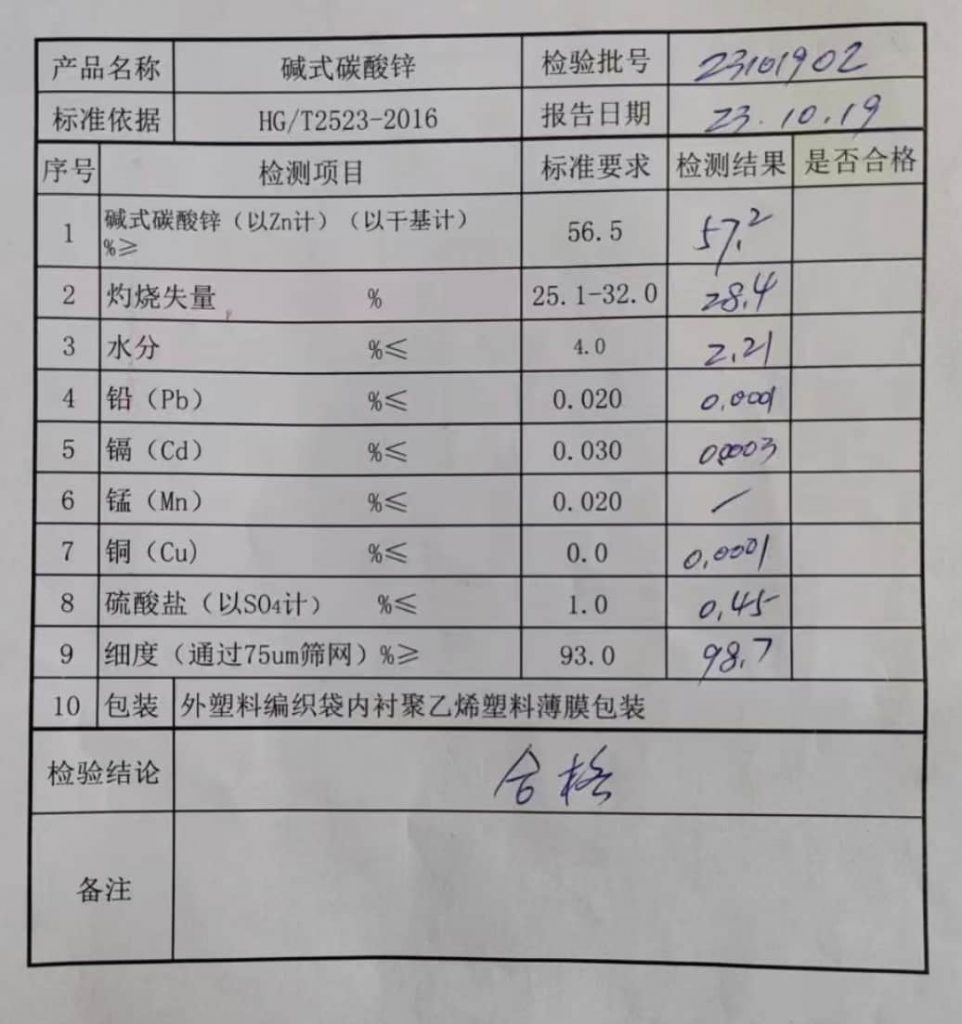 产品名称 碱式碳酸锌 检验批号 23101902
标准依据 HG/T2523-2016 报告日期 23.10.19
序号 检测项目 标准要求 检测结果 是否合格
1 碱式碳酸锌（以Zn计）（以干基计） 56.5 57.2
%≥
2 灼烧失量 % 25.1-32.0 28.4
3 水分 %≤ 4.0 2.21
4 铅（Pb） %≤ 0.020 0.0001
5 镉（Cd） %≤ 0.030 0.0003
6 锰（Mn） %≤ 0.020 /
7 铜（Cu) %≤ 0.0 0.0001
8 硫酸盐（以SO4计） %≤ 1.0 0.45
9 细度（通过75um筛网）%≥ 93.0 98.7
10 包装 外塑料编织袋内衬聚乙烯塑料薄膜包装
检验结论 合格
备注